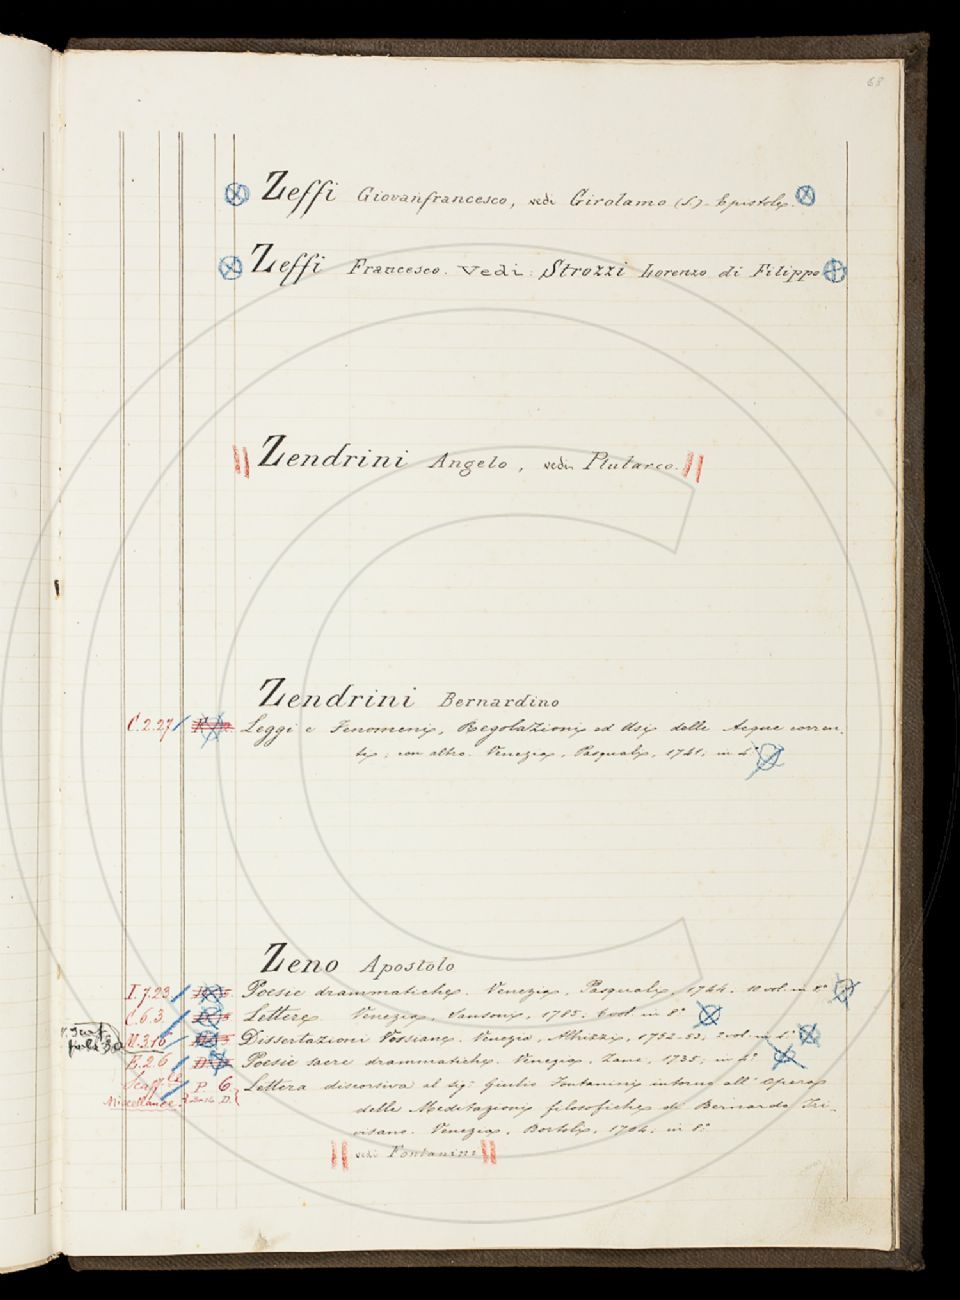 68
Zeffi Giovanfrancesco, vedi Girolamo (S.) - Epistole.
Zeffi Francesco. Vedi: Strozzi Lorenzo di Filippo
Zendrini Angelo, vedi Plutarco.
Zendrini Bernardino
C.2.27 Leggi e Fenomeni, Regolazioni ed Usi delle Acque corren-
ti, con altro. Venezia, Pasquali, 1741, in 4°
Zeno Apostolo
I.7.23 Poesie drammatiche. Venezia, Pasquali, 1744. 10 vol. in 8°
C.6.3. Lettere Venezia, Sansoni, 1785. 6 vol. in 8°
Dissertazioni Vossiane. Venezia, Albrizzi, 1752-53, 2 vol. in 4°
E.2.6 Poesie sacre drammatiche. Venezia, Zane, 1735, in 4°
P. 6 Lettera discorsiva al sig. Giulio Fontanini intorno all' Opera
Miscellanee D.
delle Meditazioni filosofiche di Bernardo Tri-
visano. Venezia, Bortoli, 1704. in 8°
vedi Fontanini